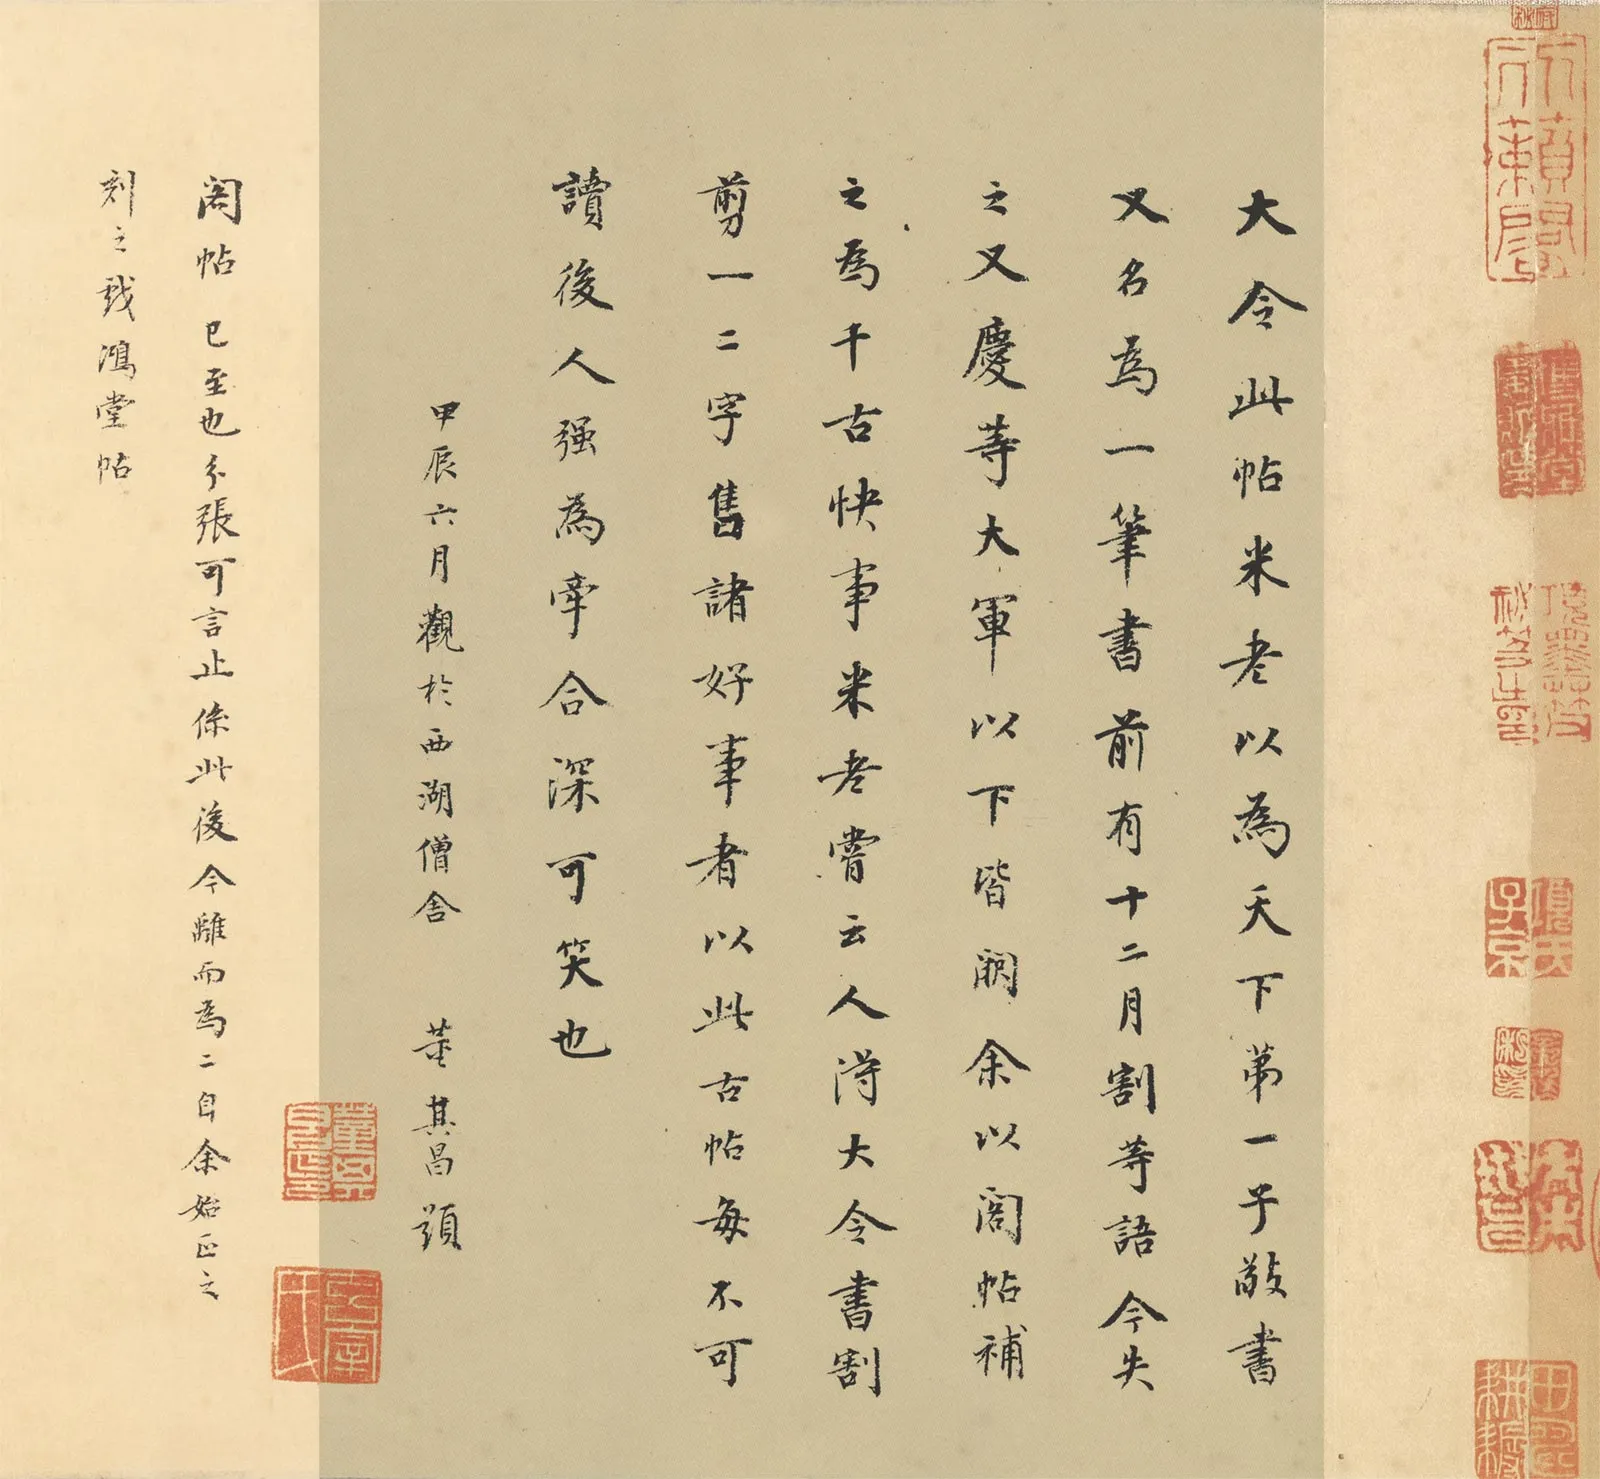 天籟閣
項墨林父秘笈之印
田疇耕耨
大令此帖米老以為天下第一子敬書
又名為一筆書前有十二月割等語今失
之又慶等大軍以下皆闕余以閣帖補
之為千古快事米老嘗云人得大令書割
剪一二字售諸好事者以此古帖每不可
讀後人强為牽合深可笑也
甲辰六月觀於西湖僧舍 董其昌題
董其昌印
閣帖 已至也分張可言止係此後今離而為二自余始正之
刻之戲鴻堂帖